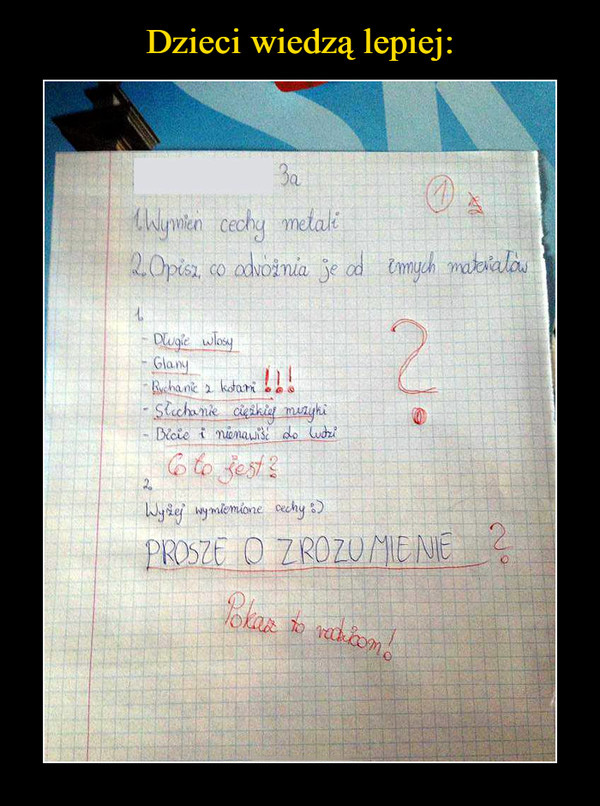 Dzieci wiedzą lepiej:
3a
1
1. Wymień cechy metali
2. Opisz, co odróżnia je od innych materiałów
1.
- Długie włosy
- Glany
- Ruchanie z kotami !!!
- Słuchanie ciężkiej muzyki
- Bicie i nienawiść do ludzi
?
Co to jest?
2.
Wyżej wymienione cechy :)
PROSZE O ZROZUMIENIE ?
Pokaż to rodzicom!